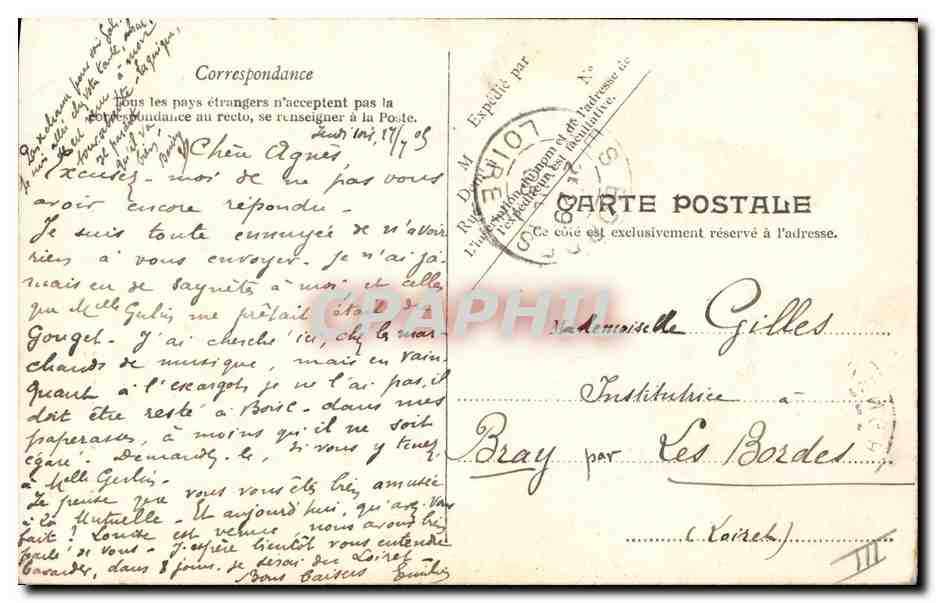 Correspondance
Tous les pays étrangers n'acceptent pas la
correspondance au recto, se renseigner à la Poste.
Jeudi soir 27/7 05
Chère Agnès,
Excusez-moi de ne pas vous
avoir encore répondu -
Je suis toute ennuyée de n'avoir
rien à vous envoyer. Je n'ai ja-
mais eu de saynètes à moi et celles
que Melle me prêtait étaient de
Gouget - J'ai cherché ici, chez les mar-
chands de musique, mais en vain -
Quant à l'escargot, je ne l'ai pas, il
doit être resté à - dans mes
paperasses, à moins qu'il ne soit
égaré - Demandez-le, si vous y tenez,
à Melle
Je pense que vous vous êtes bien amusée
à la Mutuelle - Et aujourd'hui, qu'avez-vous
fait ? Louise est venue nous avons bien
parlé de vous - J'espère bientôt vous entendre
bavarder, dans 8 jours je serai du Loiret -
Bons baisers Emilie
Expédié par
M
Rue
N°
L'inscription du nom et de l'adresse de
l'expéditeur est facultative.
LOIRET
CARTE POSTALE
Ce côté est exclusivement réservé à l'adresse.
CPAPHIL
Mademoiselle Gilles
Institutrice à
Bray par Les Bordes
(Loiret)
III